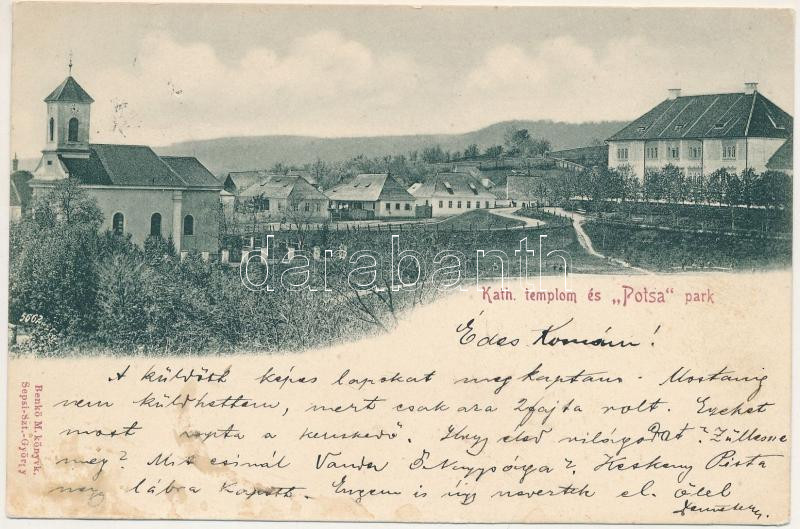 darabanth.com
Kath. templom és „Potsa" park
5662
Benkő M. könyvk.
Sepsi-Szt.-György
Édes Komám!
A küldött képes lapokat megkaptam. Mostanig
nem küldhettem, mert csak ara 2 fajta volt. Ezeket
most kapta a kereskedő. Hogy első világod? Züllesz
még? Mit csinál Vanda Ő Nagysága? Keskeny Pista
nagy lábra kapott. Engem is úgy neveztek el. Ölel